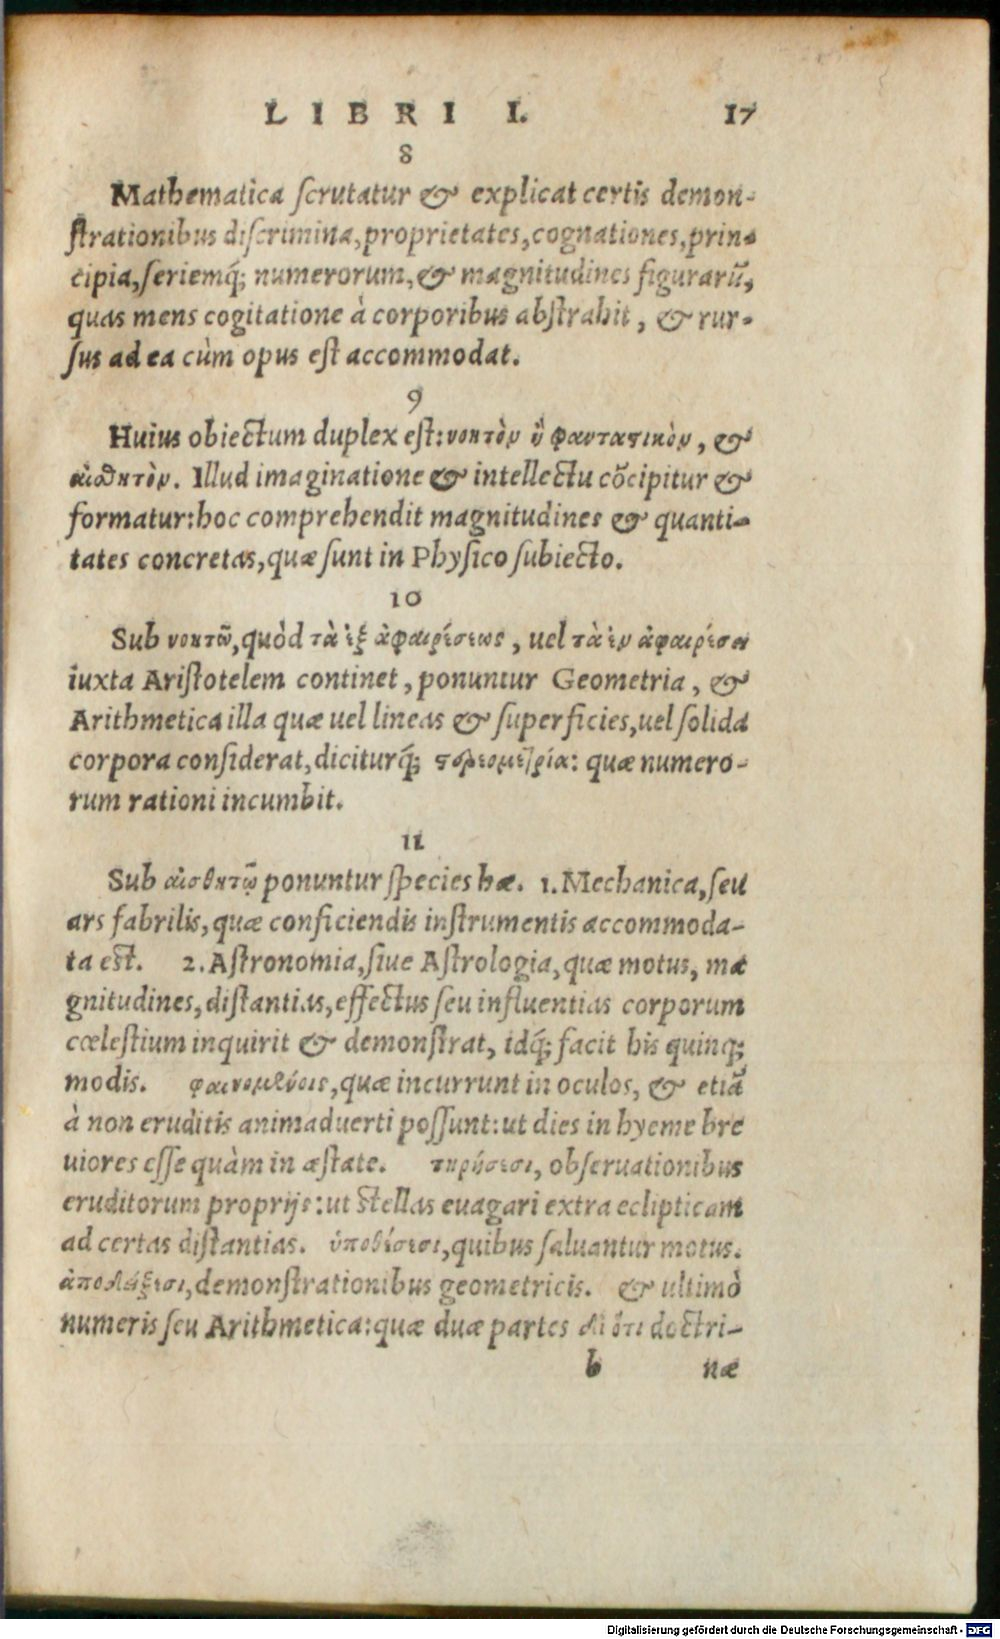 LIBRI I. 17
8
Mathematica scrutatur & explicat certis demon-
strationibus discrimina, proprietates, cognationes, prin-
cipia, seriemq́; numerorum, & magnitudines figurarũ,
quas mens cogitatione à corporibus abstrahit, & rur-
sus ad ea cùm opus est accommodat.
9
Huius obiectum duplex est: νοητὸν ἢ φανταστικὸν, &
αἰσθητὸν. Illud imaginatione & intellectu cõcipitur &
formatur: hoc comprehendit magnitudines & quanti-
tates concretas, quæ sunt in Physico subiecto.
10
Sub νοητῶ, quòd τὰ ἐξ ἀφαιρέσεως, uel τὰ ἐν ἀφαιρέσει
iuxta Aristotelem continet, ponuntur Geometria, &
Arithmetica illa quæ uel lineas & superficies, uel solida
corpora considerat, diciturq́; στερεομετρία: quæ numero-
rum rationi incumbit.
11
Sub αἰσθητῷ ponuntur species hæ. 1. Mechanica, seu
ars fabrilis, quæ conficiendis instrumentis accommoda-
ta est. 2. Astronomia, siue Astrologia, quæ motus, ma
gnitudines, distantias, effectus seu influentias corporum
cœlestium inquirit & demonstrat, idq́; facit his quinq;
modis. φαινομένοις, quæ incurrunt in oculos, & etiã
à non eruditis animaduerti possunt: ut dies in hyeme bre
uiores esse quàm in æstate. τηρήσεσι, obseruationibus
eruditorum proprijs: ut stellas euagari extra eclipticam
ad certas distantias. ὑποθέσεσι, quibus saluantur motus.
ἀποδείξεσι, demonstrationibus geometricis. & ultimò
numeris seu Arithmetica: quæ duæ partes διότι doctri-
b næ
Digitalisierung gefördert durch die Deutsche Forschungsgemeinschaft - DFG